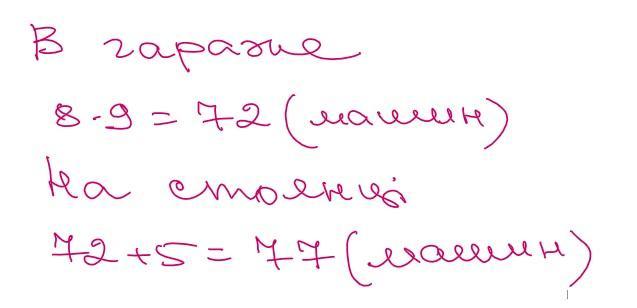 В гараже
8·9=72(машин)
На стоянці
72+5=77(машин)